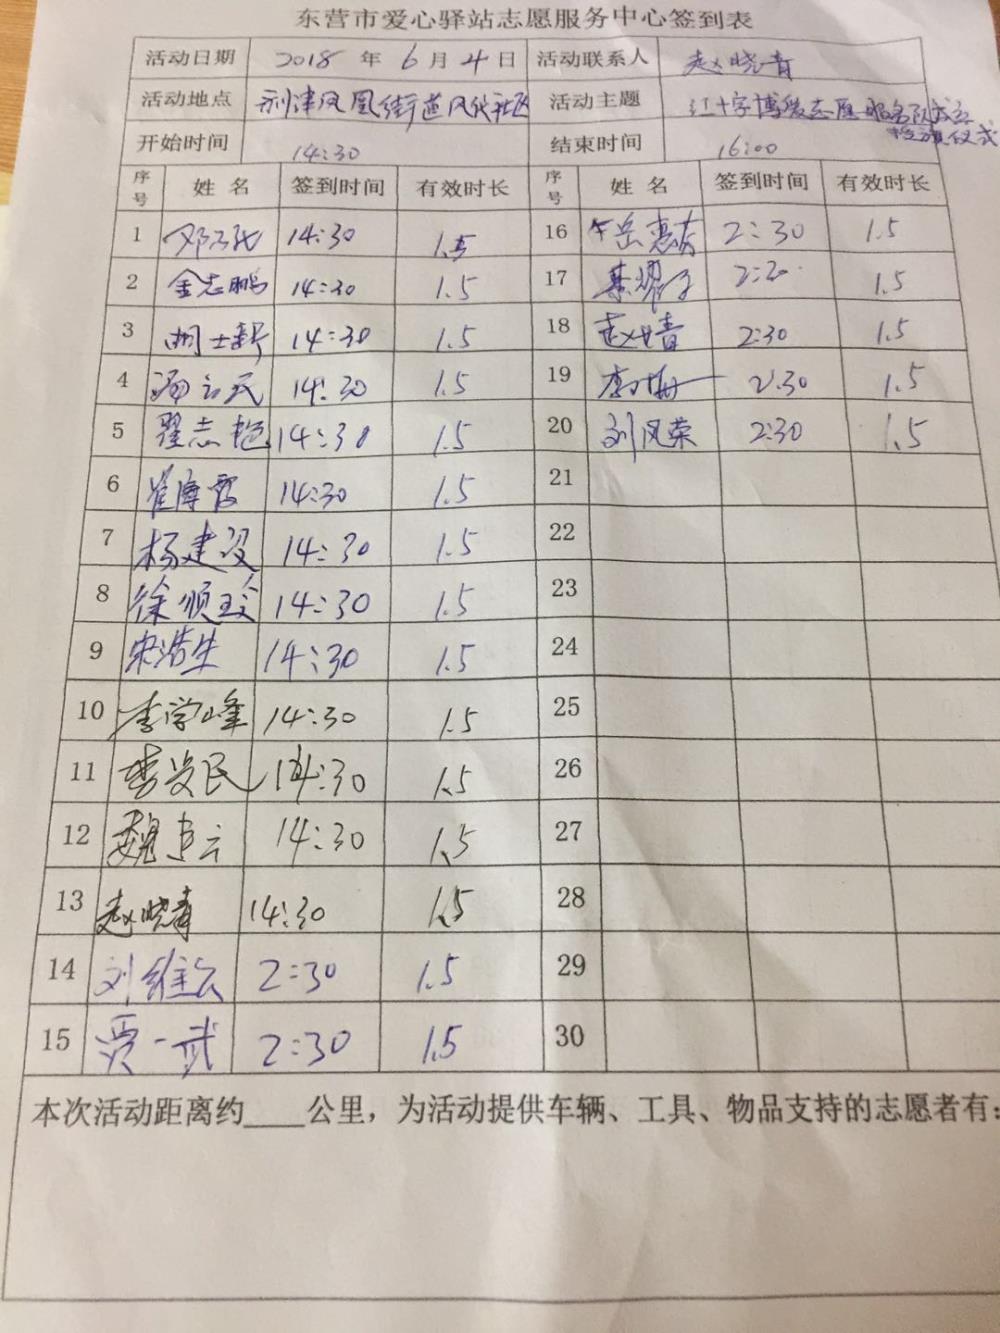 东营市爱心驿站志愿服务中心签到表
活动日期 2018 年 6 月 4 日 活动联系人 赵晓青
活动地点 利津凤凰街道凤 社区 活动主题 红十字博爱志愿服务队成立
授旗仪式
开始时间 14:30 结束时间 16:00
序号 姓名 签到时间 有效时长 序号 姓名 签到时间 有效时长
1 邓 14:30 1.5 16 岳惠 2:30 1.5
2 金志鹏 14:30 1.5 17 2:30 1.5
3 胡士 14:30 1.5 18 赵 青 2:30 1.5
4 民 14:30 1.5 19 李 2:30 1.5
5 翟志艳 14:30 1.5 20 刘风荣 2:30 1.5
6 崔 霞 14:30 1.5 21
7 杨建设 14:30 1.5 22
8 徐顺 14:30 1.5 23
9 宋浩生 14:30 1.5 24
10 李学峰 14:30 1.5 25
11 李 民 14:30 1.5 26
12 魏 云 14:30 1.5 27
13 赵晓青 14:30 1.5 28
14 刘维 2:30 1.5 29
15 贾一武 2:30 1.5 30
本次活动距离约____公里，为活动提供车辆、工具、物品支持的志愿者有：